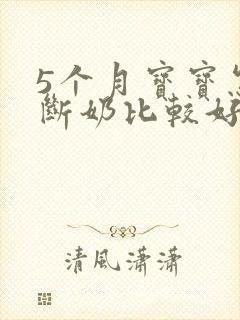 5个月寶寶怎
斷奶比較好
清風瀟瀟